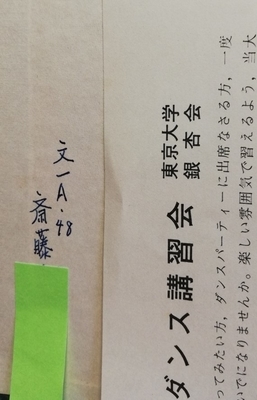 東京大学
銀杏会
ダンス講習会
ダンスパーティーに出席なさる方，一度
ってみたい方，
楽しい雰囲気で習えるよう，当大
いでになりませんか。
文一A・48
斎藤